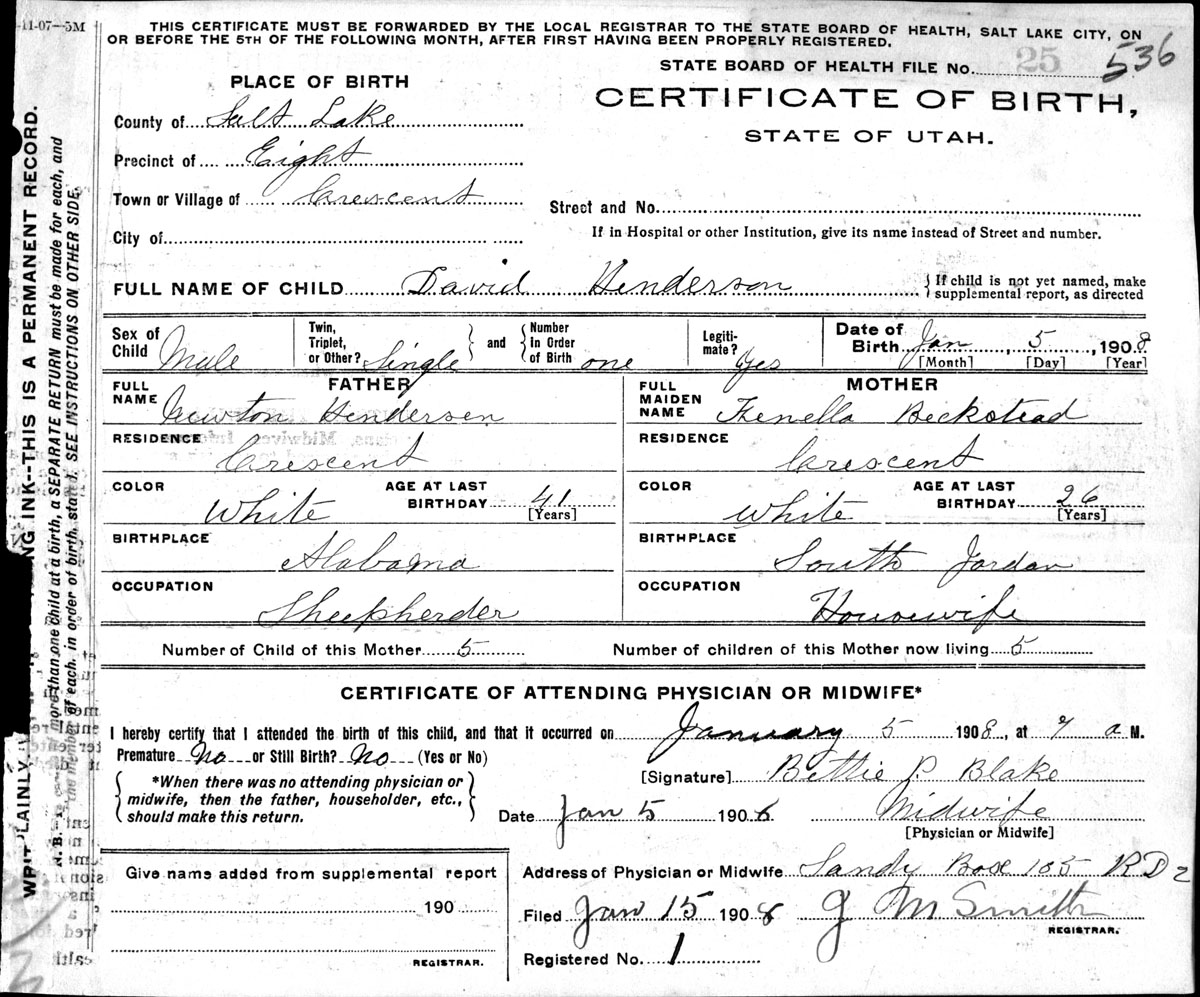 -11-07-5M
THIS CERTIFICATE MUST BE FORWARDED BY THE LOCAL REGISTRAR TO THE STATE BOARD OF HEALTH, SALT LAKE CITY, ON
OR BEFORE THE 5TH OF THE FOLLOWING MONTH, AFTER FIRST HAVING BEEN PROPERLY REGISTERED.
STATE BOARD OF HEALTH FILE No. 25 536
PLACE OF BIRTH
CERTIFICATE OF BIRTH,
STATE OF UTAH.
County of Salt Lake
Precinct of Eight
Town or Village of Crescent
Street and No.
City of
If in Hospital or other Institution, give its name instead of Street and number.
FULL NAME OF CHILD David Henderson { If child is not yet named, make
supplemental report, as directed
Sex of Child Male
Twin, Triplet, or Other? Single } and { Number In Order of Birth one
Legiti-mate? Yes
Date of Birth Jan 5, 1908
[Month] [Day] [Year]
FATHER
FULL NAME Newton Hendersen
MOTHER
FULL MAIDEN NAME Fenella Beckstead
RESIDENCE Crescent
RESIDENCE Crescent
COLOR White AGE AT LAST BIRTHDAY 41 [Years]
COLOR White AGE AT LAST BIRTHDAY 26 [Years]
BIRTHPLACE Alabama
BIRTHPLACE South Jordan
OCCUPATION Sheepherder
OCCUPATION Housewife
Number of Child of this Mother 5 Number of children of this Mother now living 5
CERTIFICATE OF ATTENDING PHYSICIAN OR MIDWIFE*
I hereby certify that I attended the birth of this child, and that it occurred on January 5 1908, at a M.
Premature No or Still Birth? No (Yes or No)
[Signature] Bettie P. Blake
{ *When there was no attending physician or
midwife, then the father, householder, etc.,
should make this return. }
Date Jan 5 1908 Midwife
[Physician or Midwife]
Give name added from supplemental report
190
REGISTRAR.
Address of Physician or Midwife Sandy Box 105 RD 2
Filed Jan 15 1908 J M Smith
REGISTRAR.
Registered No. 1
ING INK--THIS IS A PERMANENT RECORD.
WRITE PLAINLY
N. B.
more than one child at a birth, a SEPARATE RETURN must be made for each, and
of each, in order of birth, stated. SEE INSTRUCTIONS ON OTHER SIDE.